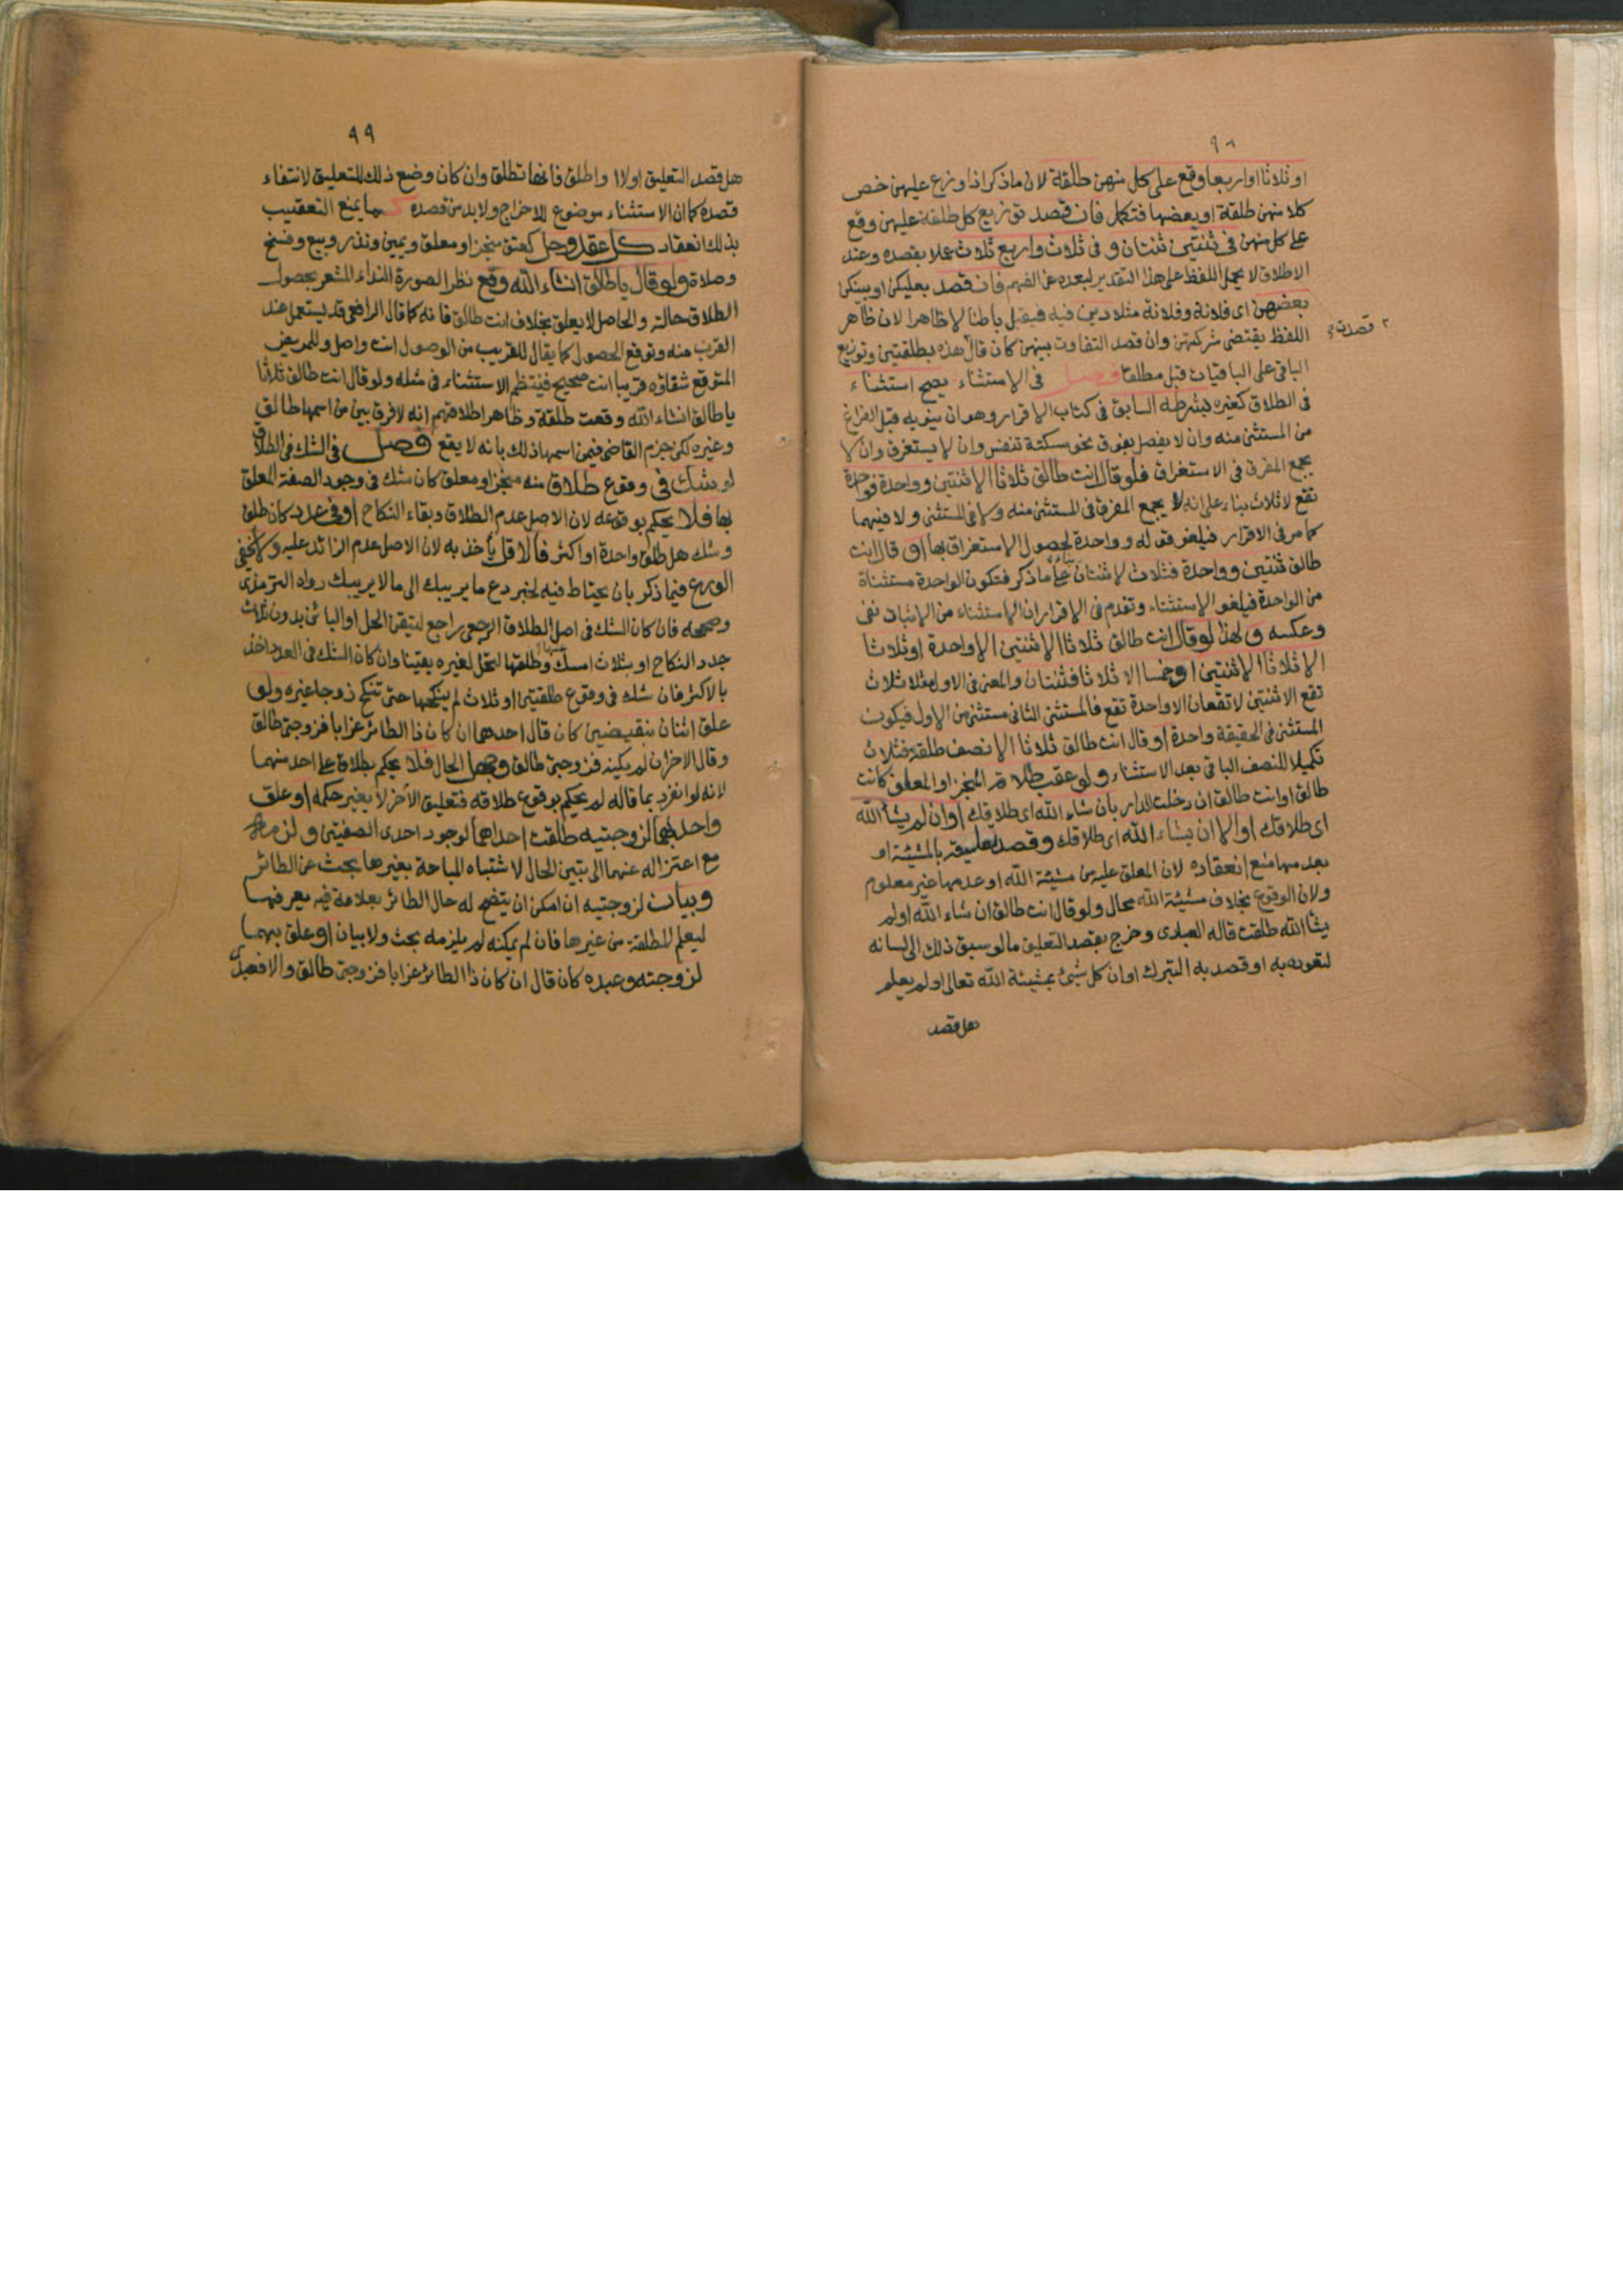 ٩٨
او ثلاثا او اربعا وقع على كل منهن طلقة لان ما ذكر اذا وزع عليهن خص
كلا منهن طلقة او بعضها فتكمل فان قصد توزيع كل طلقة عليهن وقع
على كل منهن في ثنتين ثنتان وفي ثلاث واربع ثلاث عملا بقصده وعند
الاطلاق لا يحمل اللفظ على هذا التقدير لبعده عن الفهم فان قصد بعليكن او بينكن
بعضهن اى فلانة وفلانة مثلا دين فيه فيقبل باطنا لا ظاهرا لان ظاهر
اللفظ يقتضى شركتهن وان قصد التفاوت بينهن كان قال هذه بطلقتين وتوزيع
الباقى على الباقيات قبل مطلقا فصل في الاستثناء يصح استثناء
فى الطلاق كغيره بشرطه السابق فى كتاب الاقرار وهو ان ينويه قبل الفراغ
من المستثنى منه وان لا يفصل بفوق نحو سكتة تنفس وان لا يستغرق وان لا
يجمع المفرق فى الاستغراق فلو قال انت طالق ثلاثا الا ثنتين وواحدة فواحدة
تقع لا ثلاث بناء على انه لا يجمع المفرق فى المستثنى منه ولا فى المستثنى ولا فيهما
كما مر فى الاقرار فيلغو قوله وواحدة لحصول الاستغراق بها او قال انت
طالق ثنتين وواحدة فثلاث لا ثنتان بناء على ما ذكر فتكون الواحدة مستثناة
من الواحدة فيلغو الاستثناء وتقدم فى الاقرار ان الاستثناء من الاثبات نفى
وعكسه ولهذا لو قال انت طالق ثلاثا الا ثنتين الا واحدة او ثلاثا
الا ثلاثا الا ثنتين او خمسا الا ثلاثا فثنتان والمعنى فى الاول مثلا ثلاث
تقع الا ثنتين لا تقعان الا واحدة تقع فالمستثنى الثانى مستثنى من الاول فيكون
المستثنى فى الحقيقة واحدة او قال انت طالق ثلاثا الا نصف طلقة فثلاث
تكميلا للنصف الباقى بعد الاستثناء ولو عقب طلاقه المنجز او المعلق كانت
طالق او انت طالق ان دخلت الدار بان شاء الله اى طلاقك او ان لم يشأ الله
اى طلاقك او الا ان يشاء الله اى طلاقك وقصد تعليقه بالمشيئة او
بعدمها منع انعقاده لان المعلق عليه من مشيئة الله او عدمها غير معلوم
ولان الوقوع بخلاف مشيئة الله محال ولو قال انت طالق ان شاء الله او لم
يشأ الله طلقت قاله العبادى وخرج بقصد التعليق ما لو سبق ذلك الى لسانه
لتعوده به او قصد به التبرك او ان كل شئ بمشيئة الله تعالى او لم يعلم
هل قصد
٩٩
هل قصد التعليق اولا او اطلق فانها تطلق وان كان وضع ذلك للتعليق لانتفاء
قصده كما ان الاستثناء موضوع للاخراج ولا بد من قصده كما يمنع التعقيب
بذلك انعقاد كل عقد وحل كعتق منجز او معلق ويمين ونذر وبيع وفسخ
وصلاة ولو قال يا طالق انشاء الله وقع نظرا لصورة النداء المشعر بحصول
الطلاق حالته والحاصل لا يعلق بخلاف انت طالق فانه كما قال الرافعى قد يستعمل عند
القرب منه وتوقع الحصول كما يقال للقريب من الوصول انت واصل وللمريض
المتوقع شفاؤه قريبا انت صحيح فينتظم الاستثناء فى مثله ولو قال انت طالق ثلاثا
يا طالق انشاء الله وقعت طلقة وظاهر اطلاقهم انه لا فرق بين من اسمها طالق
وغيره لكن جزم القاضى فيمن اسمها ذلك بانه لا يقع فصل فى الشك فى الطلاق
لو شك فى وقوع طلاق منه منجز او معلق كان شك فى وجود الصفة المعلق
بها فلا يحكم بوقوعه لان الاصل عدم الطلاق وبقاء النكاح او فى عدد كان طلق
وشك هل طلق واحدة او اكثر فالاقل يأخذ به لان الاصل عدم الزائد عليه ولا يخفى
الورع فيما ذكر بان يحتاط فيه لخبر دع ما يريبك الى ما لا يريبك رواه الترمذى
وصححه فان كان الشك فى اصل الطلاق الرجعى راجع ليتيقن الحل او البائن بدون ثلاث
جدد النكاح او بثلاث امسك عنها وطلقها لتحل لغيره يقينا وان كان الشك فى العدد اخذ
بالاكثر فان شك فى وقوع طلقتين او ثلاث لم ينكحها حتى تنكح زوجا غيره ولو
علق اثنان بنقيضين كان قال احدهما ان كان ذا الطائر غرابا فزوجتى طالق
وقال الاخر ان لم يكنه فزوجتى طالق وجهل الحال فلا يحكم بطلاق على احد منهما
لانه لو انفرد بما قاله لم يحكم بوقوع طلاقه فتعليق الآخر لا يغير حكمه او علق
واحد بهما لزوجتيه طلقت احداهما لوجود احدى الصفتين ولزمه
مع اعتزاله عنهما الى تبين الحال لاشتباه المباحة بغيرها بحث عن الطائر
وبيان لزوجتيه ان امكن ان يتضح له حال الطائر بعلامة فيه يعرفها
ليعلم المطلقة من غيرها فان لم يمكنه لم يلزمه بحث ولا بيان او علق بهما
لزوجته وعبده كان قال ان كان ذا الطائر غرابا فزوجتى طالق والا فعبدى